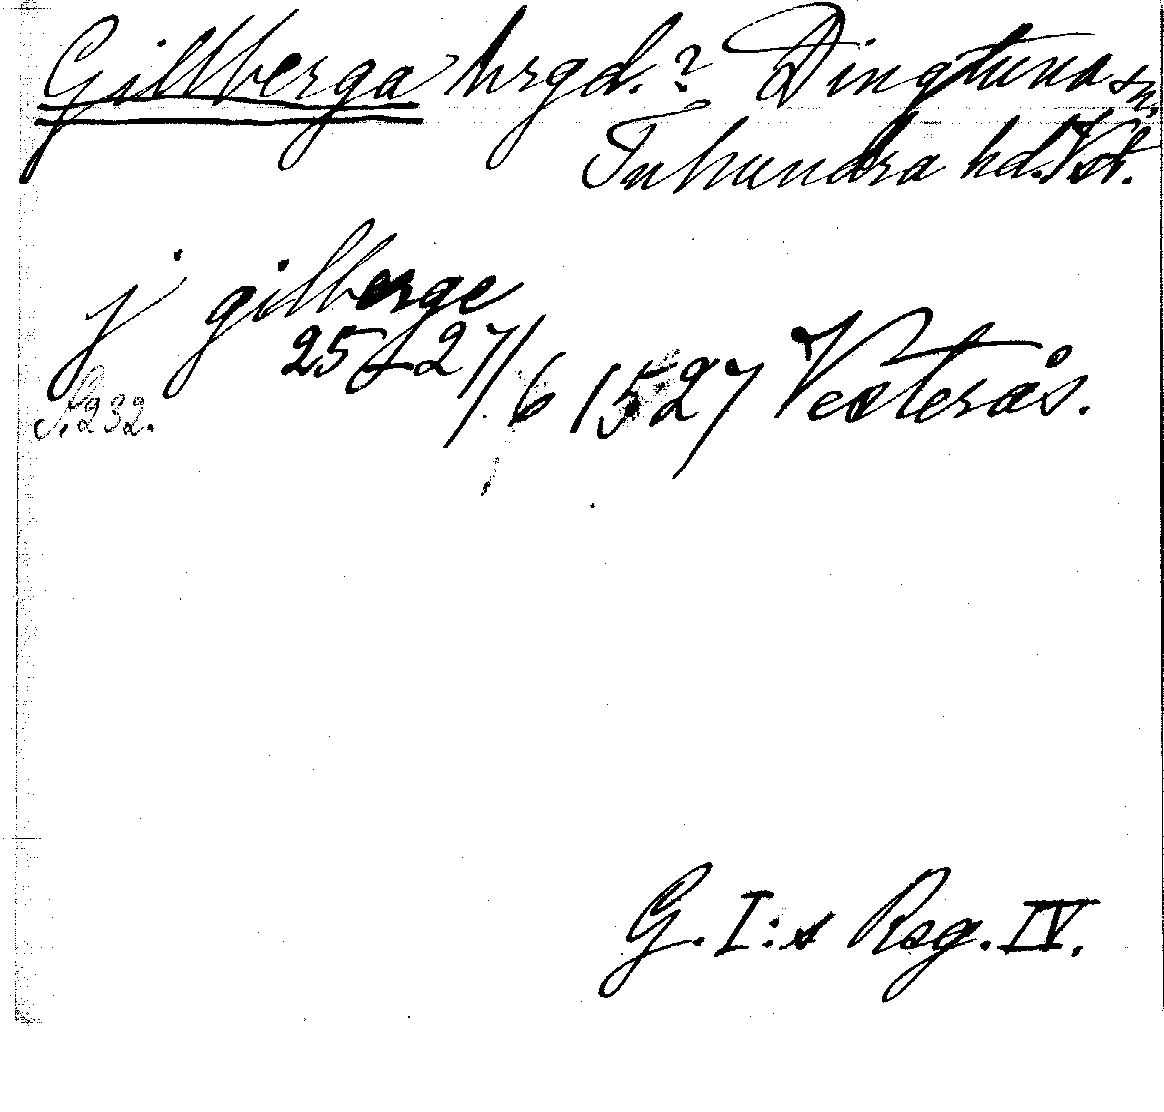 Gillberga hrgd.? Dingtuna sn,
Tuhundra hd. Vstm.
j gilberge
25 f 27/6 1527 Vesterås.
S. 232.
G. I:s Rsg. IV.